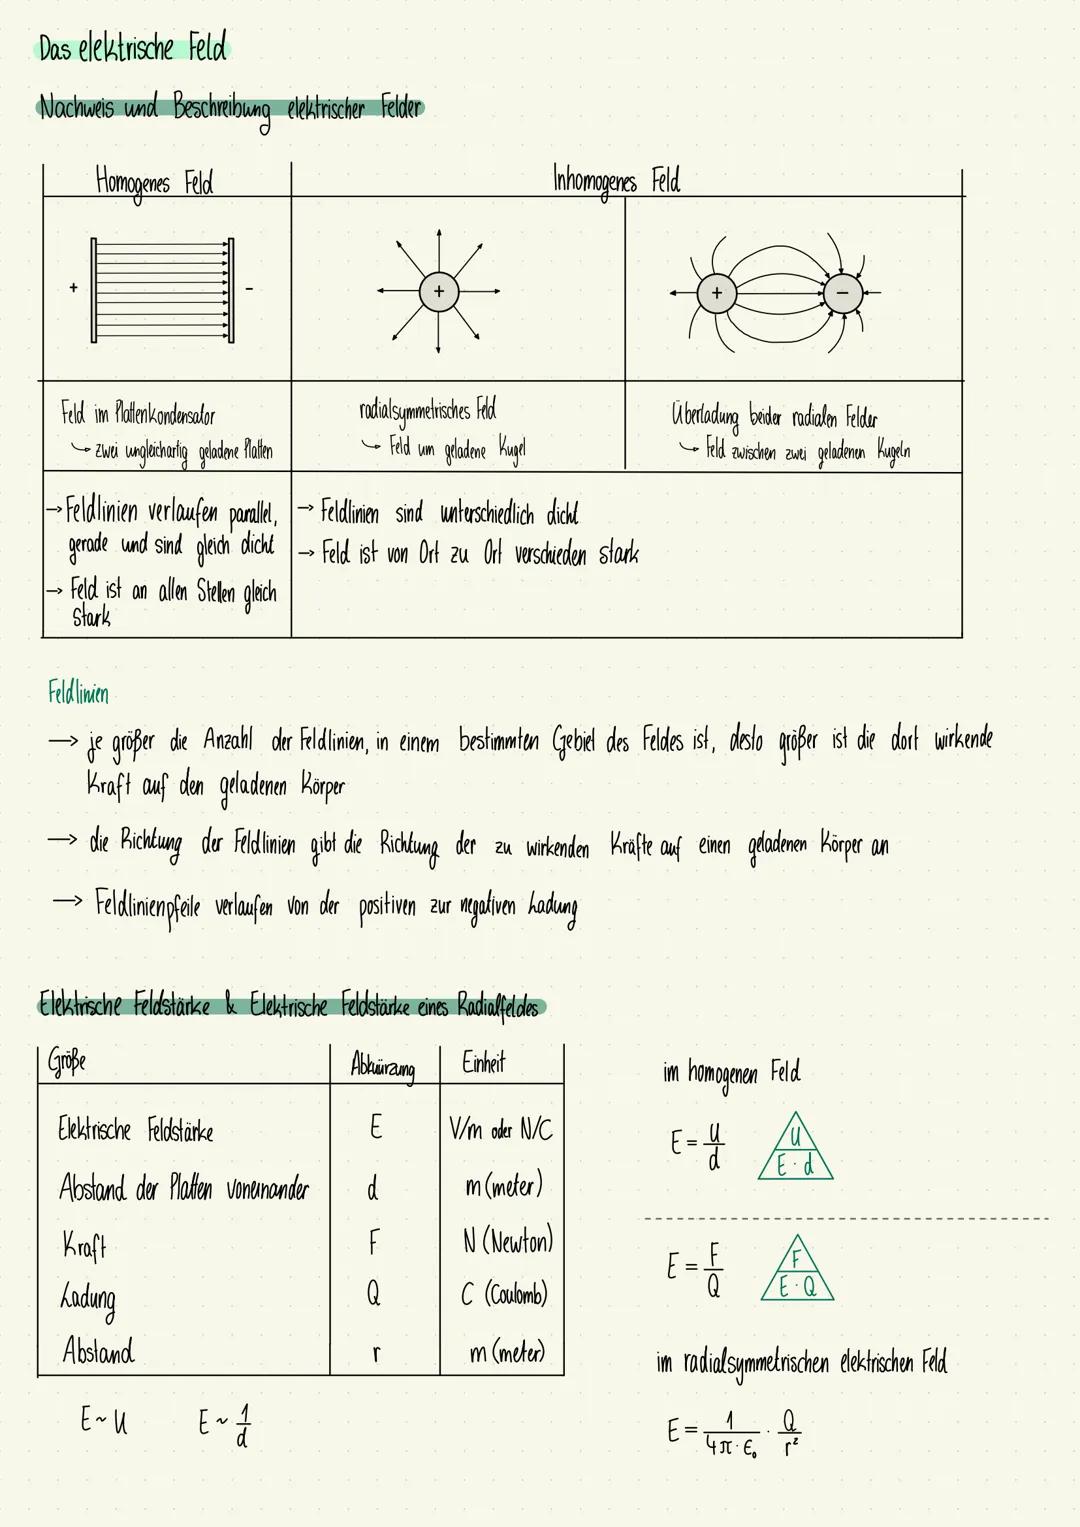 Das elektrische Feld
Nachweis und Beschreibung elektrischer Felder
Homogenes Feld
Inhomogenes Feld
+ -
+
+ -
Feld im Plattenkondensator
↳ zwei ungleichartig geladene Platten
radialsymmetrisches Feld
↳ Feld um geladene Kugel
Überladung beider radialen Felder
↳ Feld zwischen zwei geladenen Kugeln
→ Feldlinien verlaufen parallel,
gerade und sind gleich dicht
→ Feld ist an allen Stellen gleich
stark
→ Feldlinien sind unterschiedlich dicht
→ Feld ist von Ort zu Ort verschieden stark
Feldlinien
→ je größer die Anzahl der Feldlinien, in einem bestimmten Gebiet des Feldes ist, desto größer ist die dort wirkende
Kraft auf den geladenen Körper
→ die Richtung der Feldlinien gibt die Richtung der zu wirkenden Kräfte auf einen geladenen Körper an
→ Feldlinienpfeile verlaufen von der positiven zur negativen Ladung
Elektrische Feldstärke & Elektrische Feldstärke eines Radialfeldes
Größe Abkürzung Einheit
Elektrische Feldstärke E V/m oder N/C
Abstand der Platten voneinander d m (meter)
Kraft F N (Newton)
Ladung Q C (Coulomb)
Abstand r m (meter)
E ~ U E ~ 1/d
im homogenen Feld
E = U/d
U
E · d
E = F/Q
F
E · Q
im radialsymmetrischen elektrischen Feld
E = 1/(4π · ε₀) · Q/r²